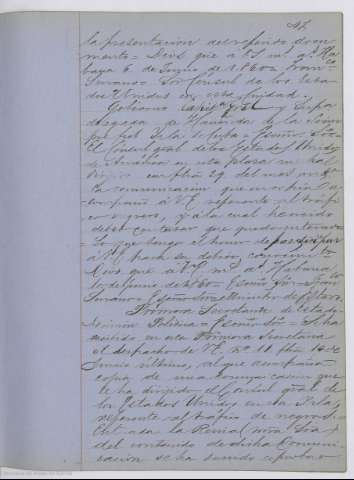 47
la presentacion del referido docu
mento = Dios gue a V.S. m. a. Ha
bana 6 de Junio de 1860 = Fran.co
Serrano = Sor Consul de los Esta
dos Unidos en esta Ciudad.
Gobierno Capit.a Gral y Supa
Delegada de Hacienda de la Siem
pre fiel Isla de Cuba = Escmo Sor =
El Consul gral de los Estados Unidos
de America en esta plaza me ha
en fha 29 del mes
la comunicacion que en copia
a V.E. referente al trafi
co negrero, y a la cual he creido
deber contestar que quedo enterado
Lo que tengo el honor de participar
a V.E. para su debido conocimto
Dios gue a V.E. m.s a.s Habana
de Junio de 1860 = Escmo Sor = Fran.co
Serrano = Escmo Sor Ministro de Estado.
Primera Secretaria de Estado =
Politica = Escmo Sor = Se ha
recibido en esta Primera Secretaria
el despacho de V.E. no 11 fha
Junio ultimo, al que acompaña
copia de una comunicacion que
le ha dirigido el Consul gral de
los Estados Unidos en esa Isla,
referente al trafico de negros.
Enterada la Reina (nuestra Sra)
del contenido de dicha comuni-
cacion se ha servido aprobar